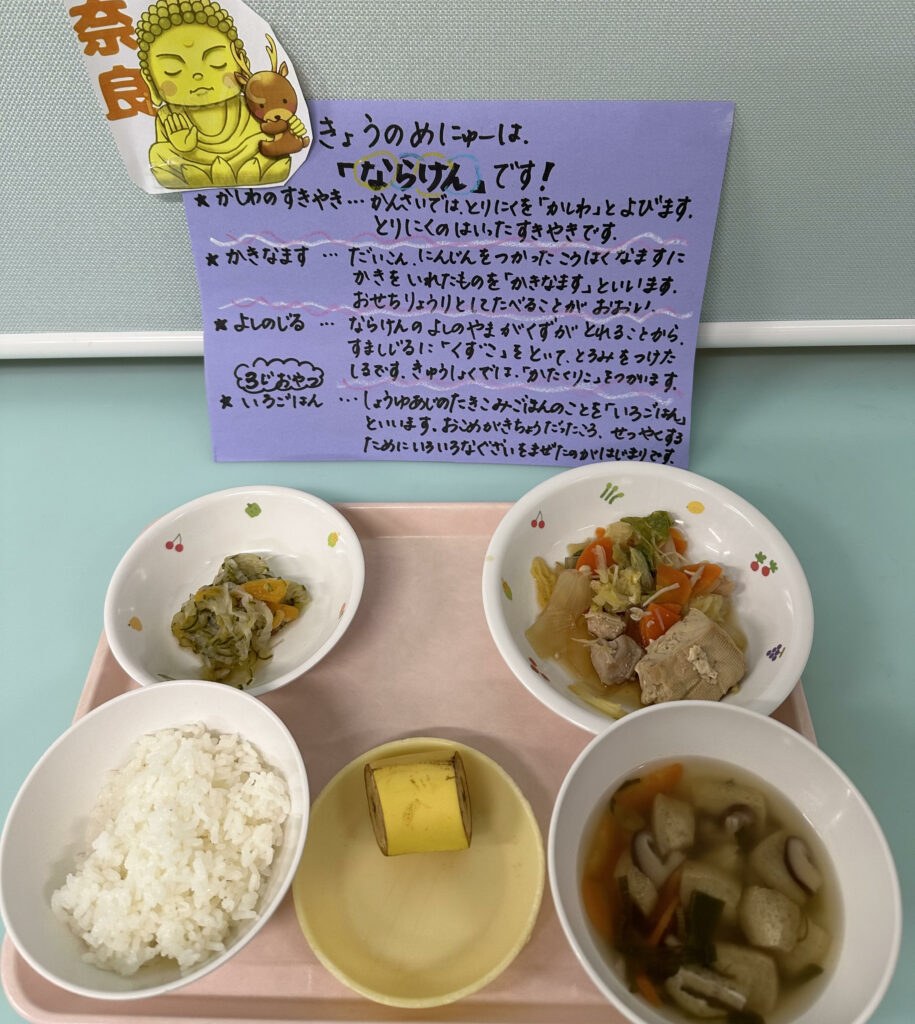 奈
良
きょうのめにゅーは、
「ならけん」です!
★かしわのすきやき…かんさいでは、とりにくを「かしわ」とよびます。
とりにくのはいったすきやきです。
★かきなます…だいこん、にんじんをつかったこうはくなますに
かきをいれたものを「かきなます」といいます。
おせちりょうりとしてたべることがおおい。
★よしのじる…ならけんのよしのやまがくずがとれることから、
すましじるに「くずこ」をといて、とろみをつけた
しるです。きゅうしょくでは、「かたくりこ」をつかいます。
3じおやつ
★いろごはん…しょうゆあじのたきこみごはんのことを「いろごはん」
といいます。おこめがきちょうだったころ、せつやくする
ためにいろいろなぐざいをまぜたのがはじまりです。